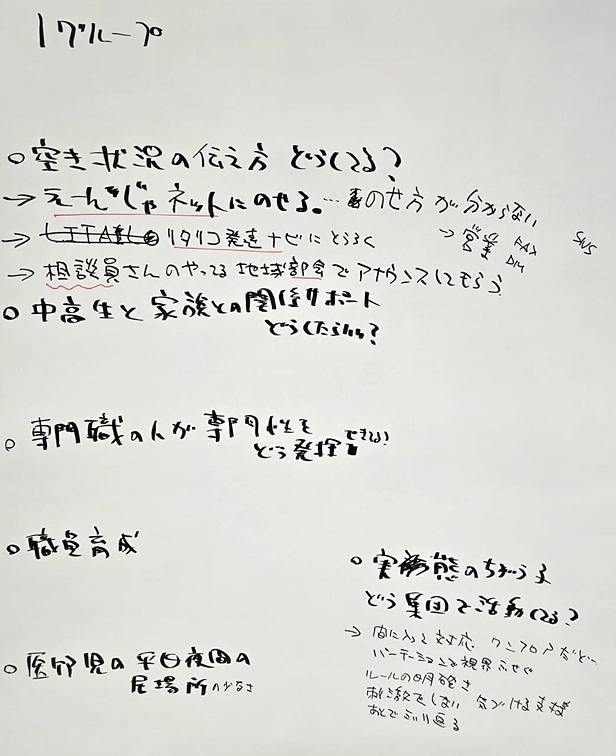 1グループ
○空き状況の伝え方 どうしてる?
→えーんじゃネットにのせる。…のせ方が分からない
→営業 FAX DM SNS
→リタリコ発達ナビにとうろく
→相談員さんのやってる地域部会でアナウンスしてもらう
○中高生と家族との関係サポート
どうしたらいい?
○専門職の人が専門性を
どう発揮できる?
○職員育成
○医ケア児の平日夜間の
居場所の少なさ
○実態のちがう子
どう集団で活動してる?
→間に入って対応 ワンフロアだと…
パーテーションで視界ふせぐ
ルールの明確さ
刺激をしない 気づける支援
あとでふり返る